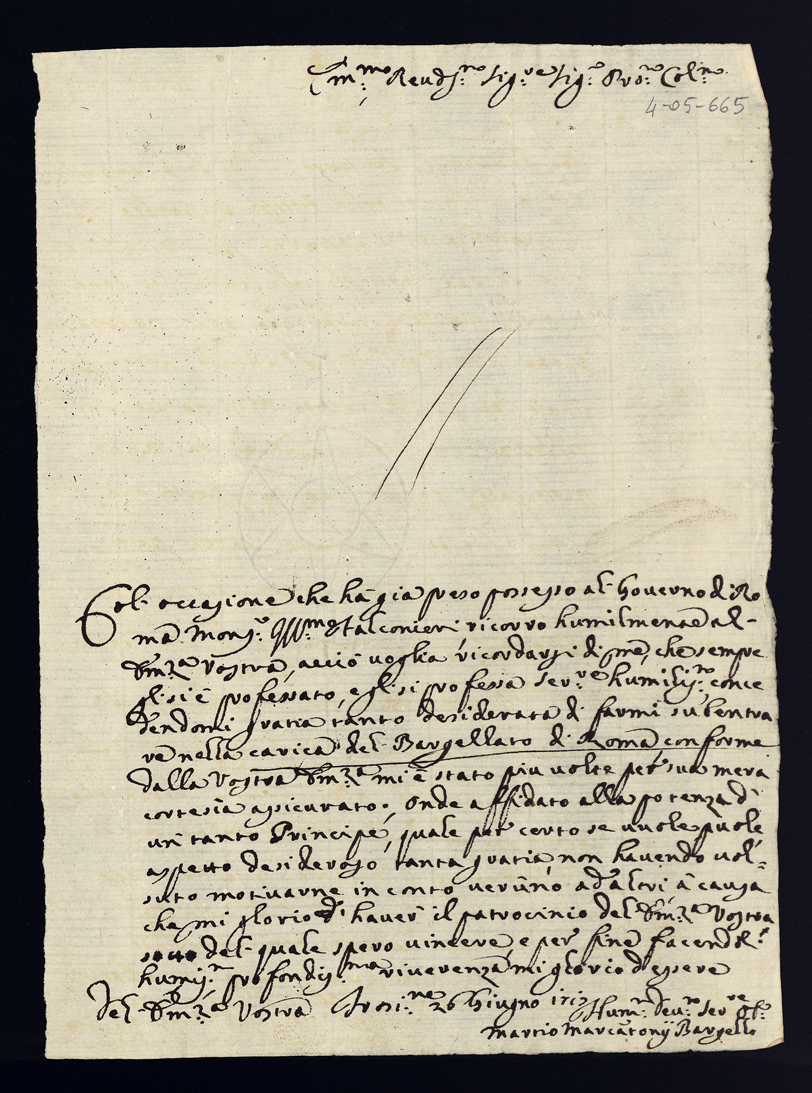 Em.mo Revd.mo Sig.re Sig.r Pro.ne Col.mo
4-05-665
Col occasione che hà già preso possesso al Governo di Ro
ma Mons.r Ill.mo Falconieri ricorro humilmente al-
Em.za Vostra, acciò voglia ricordarsi di me, che sempre
gli si è professato, e gli si professa ser.re humiliss.mo conce
dendomi gratia tanto desiderata di farmi subentra
re nella carica del Bargellato di Roma conforme
dalla Vostra Em.za mi è stato piu volte per sua mera
cortesia assicurato; onde affidato alla potenza di
un tanto Principe, quale per certo se vuole puole
aspetto desideroso tanta gratia, non havendo vol-
suto motivarne in conto veruno ad altri à causa
che mi glorio d'haver il patrocinio del Em.za Vostra
sotto del quale spero vincere, e per fine facendoli
humiss.a profondiss.ma riverenza mi glorio d'essere
Del Em.za Vostra Frosi.ne 26 Giugno 1717 Hum.o Dev.o Ser.re Ob.o
Martio Marcatonij Bargello